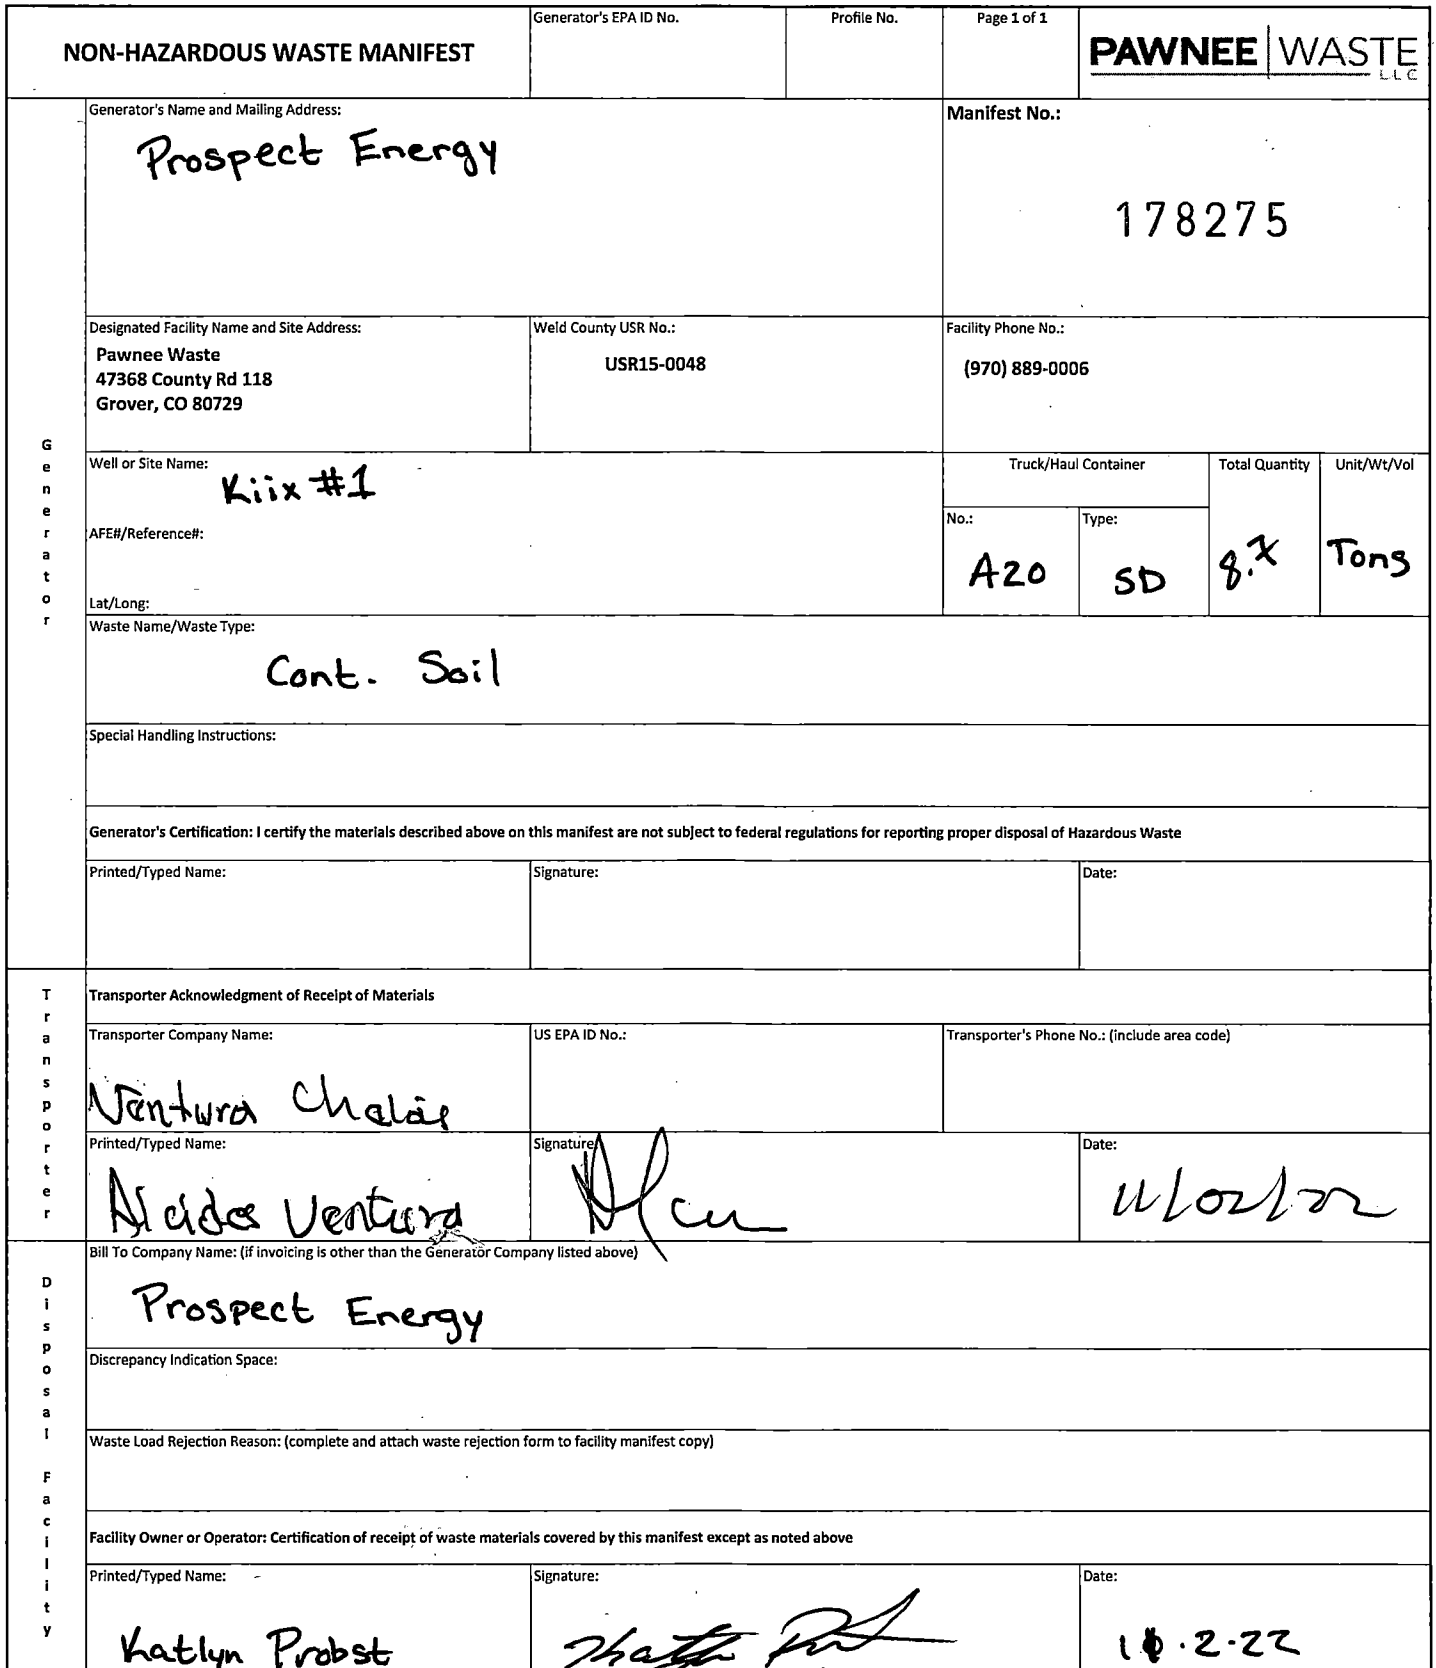 NON-HAZARDOUS WASTE MANIFEST
Generator's EPA ID No.
Profile No.
Page 1 of 1
PAWNEE WASTE
LLC
Generator's Name and Mailing Address:
Prospect Energy
Manifest No.:
178275
Designated Facility Name and Site Address:
Pawnee Waste
47368 County Rd 118
Grover, CO 80729
Weld County USR No.:
USR15-0048
Facility Phone No.:
(970) 889-0006
Generator
Well or Site Name:
Kiix #1
AFE#/Reference#:
Lat/Long:
Truck/Haul Container
Total Quantity
Unit/Wt/Vol
No.:
A20
Type:
SD
8.7
Tons
Waste Name/Waste Type:
Cont. Soil
Special Handling Instructions:
Generator's Certification: I certify the materials described above on this manifest are not subject to federal regulations for reporting proper disposal of Hazardous Waste
Printed/Typed Name:
Signature:
Date:
Transporter
Transporter Acknowledgment of Receipt of Materials
Transporter Company Name:
Ventura
US EPA ID No.:
Transporter's Phone No.: (include area code)
Printed/Typed Name:
Ventura
Signature
Date:
11/02/22
Disposal Facility
Bill To Company Name: (if invoicing is other than the Generator Company listed above)
Prospect Energy
Discrepancy Indication Space:
Waste Load Rejection Reason: (complete and attach waste rejection form to facility manifest copy)
Facility Owner or Operator: Certification of receipt of waste materials covered by this manifest except as noted above
Printed/Typed Name:
Katlyn Probst
Signature:
Date:
11.2.22